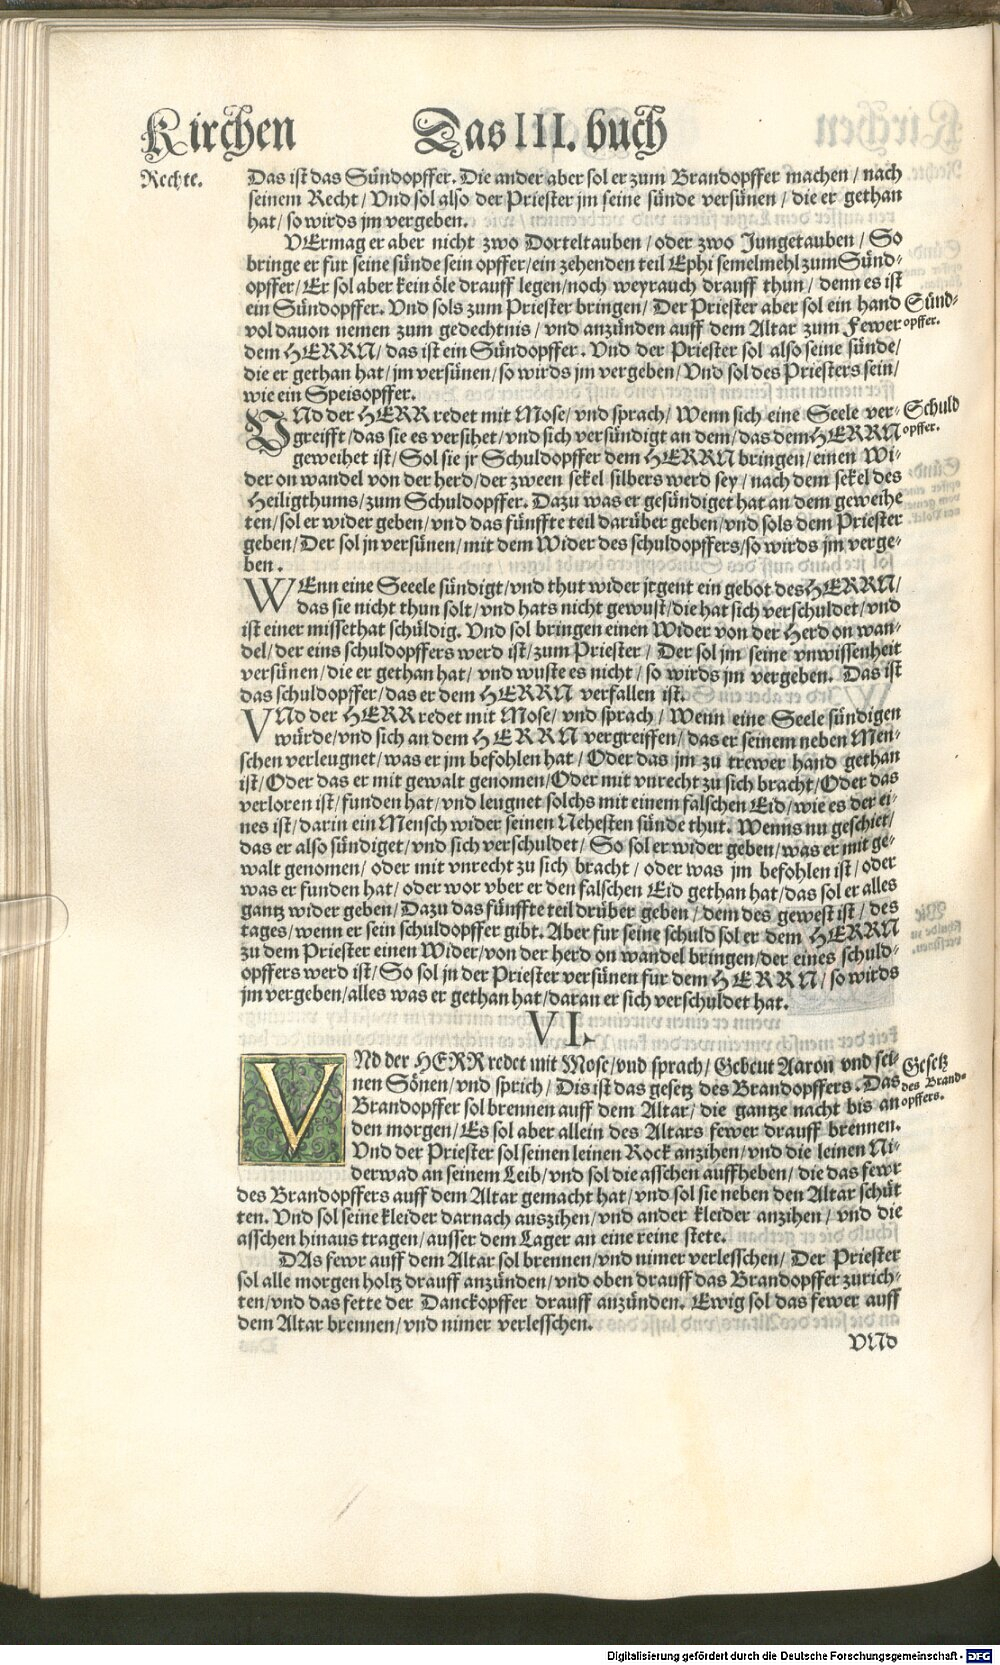 Kirchen Das III. buch
Rechte.
Das ist das Sündopffer. Die ander aber sol er zum Brandopffer machen / nach
seinem Recht / Vnd sol also der Priester jm seine sünde versünen / die er gethan
hat / so wirds jm vergeben.
VErmag er aber nicht zwo Dorteltauben / oder zwo Jungetauben / So
bringe er fur seine sünde sein opffer / ein zehenden teil Ephi semelmehl zum Sünd-
opffer / Er sol aber kein öle drauff legen / noch weyrauch drauff thun / denn es ist
ein Sündopffer. Vnd sols zum Priester bringen / Der Priester aber sol ein hand
vol dauon nemen zum gedechtnis / vnd anzünden auff dem Altar zum Fewer
dem HERRN / das ist ein Sündopffer. Vnd der Priester sol also seine sünde /
die er gethan hat / jm versünen / so wirds jm vergeben / Vnd sol des Priesters sein /
wie ein Speisopffer.
Sünd-
opffer.
VNd der HERR redet mit Mose / vnd sprach / Wenn sich eine Seele ver-
greifft / das sie es versihet / vnd sich versündigt an dem / das dem HERRN
geweihet ist / Sol sie jr Schuldopffer dem HERRN bringen / einen Wi-
der on wandel von der herd / der zween sekel silbers werd sey / nach dem sekel des
Heiligthums / zum Schuldopffer. Dazu was er gesündiget hat an dem geweihe
ten / sol er wider geben / vnd das fünffte teil darüber geben / vnd sols dem Priester
geben / Der sol jn versünen / mit dem Wider des schuldopffers / so wirds jm verge-
ben.
Schuld
opffer.
WEnn eine Seeele sündigt / vnd thut wider jrgent ein gebot des HERRN /
das sie nicht thun solt / vnd hats nicht gewust / die hat sich verschuldet / vnd
ist einer missethat schüldig. Vnd sol bringen einen Wider von der Herd on wan-
del / der eins schuldopffers werd ist / zum Priester / Der sol jm seine vnwissenheit
versünen / die er gethan hat / vnd wuste es nicht / so wirds jm vergeben. Das ist
das schuldopffer / das er dem HERRN verfallen ist.
VNd der HERR redet mit Mose / vnd sprach / Wenn eine Seele sündigen
würde / vnd sich an dem HERRN vergreiffen / das er seinem neben Men-
schen verleugnet / was er jm befohlen hat / Oder das jm zu trewer hand gethan
ist / Oder das er mit gewalt genomen / Oder mit vnrecht zu sich bracht / Oder das
verloren ist / funden hat / vnd leugnet solchs mit einem falschen Eid / wie es der ei-
nes ist / darin ein Mensch wider seinen Nehesten sünde thut. Wenns nu geschiet /
das er also sündiget / vnd sich verschuldet / So sol er wider geben / was er mit ge-
walt genomen / oder mit vnrecht zu sich bracht / oder was jm befohlen ist / oder
was er funden hat / oder wor vber er den falschen Eid gethan hat / das sol er alles
gantz wider geben / Dazu das fünffte teil drüber geben / dem des gewest ist / des
tages / wenn er sein schuldopffer gibt. Aber fur seine schuld sol er dem HERRN
zu dem Priester einen Wider / von der herd on wandel bringen / der eines schuld-
opffers werd ist / So sol jn der Priester versünen fur dem HERRN / so wirds
jm vergeben / alles was er gethan hat / daran er sich verschuldet hat.
VI.
VNd der HERR redet mit Mose / vnd sprach / Gebeut Aaron vnd sei-
nen Sönen / vnd sprich / Dis ist das gesetz des Brandopffers. Das
Brandopffer sol brennen auff dem Altar / die gantze nacht bis an
den morgen / Es sol aber allein des Altars fewer drauff brennen.
Vnd der Priester sol seinen leinen Rock anzihen / vnd die leinen Ni-
derwad an seinem Leib / vnd sol die asschen auffheben / die das fewr
des Brandopffers auff dem Altar gemacht hat / vnd sol sie neben den Altar schüt
ten. Vnd sol seine kleider darnach auszihen / vnd ander kleider anzihen / vnd die
asschen hinaus tragen / ausser dem Lager an eine reine stete.
Gesetz
des Brand-
opffers.
DAs fewr auff dem Altar sol brennen / vnd nimer verlesschen / Der Priester
sol alle morgen holtz drauff anzünden / vnd oben drauff das Brandopffer zurich-
ten / vnd das fette der Danckopffer drauff anzünden. Ewig sol das fewer auff
dem Altar brennen / vnd nimer verlesschen.
VNd
Digitalisierung gefördert durch die Deutsche Forschungsgemeinschaft - DFG